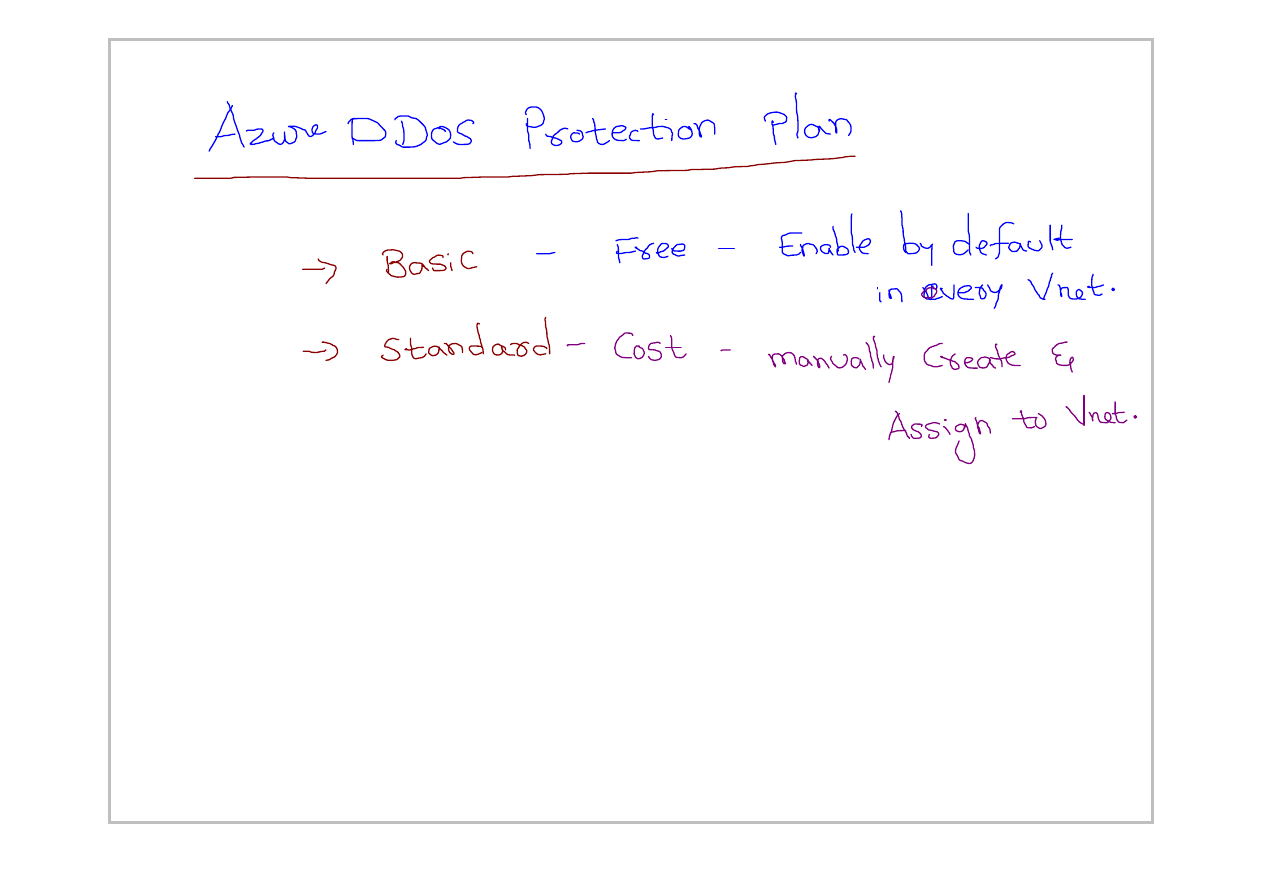 Azure DDos Protection Plan
→ Basic - Free - Enable by default
in every Vnet.
→ Standard - Cost - manually Create &
Assign to Vnet.